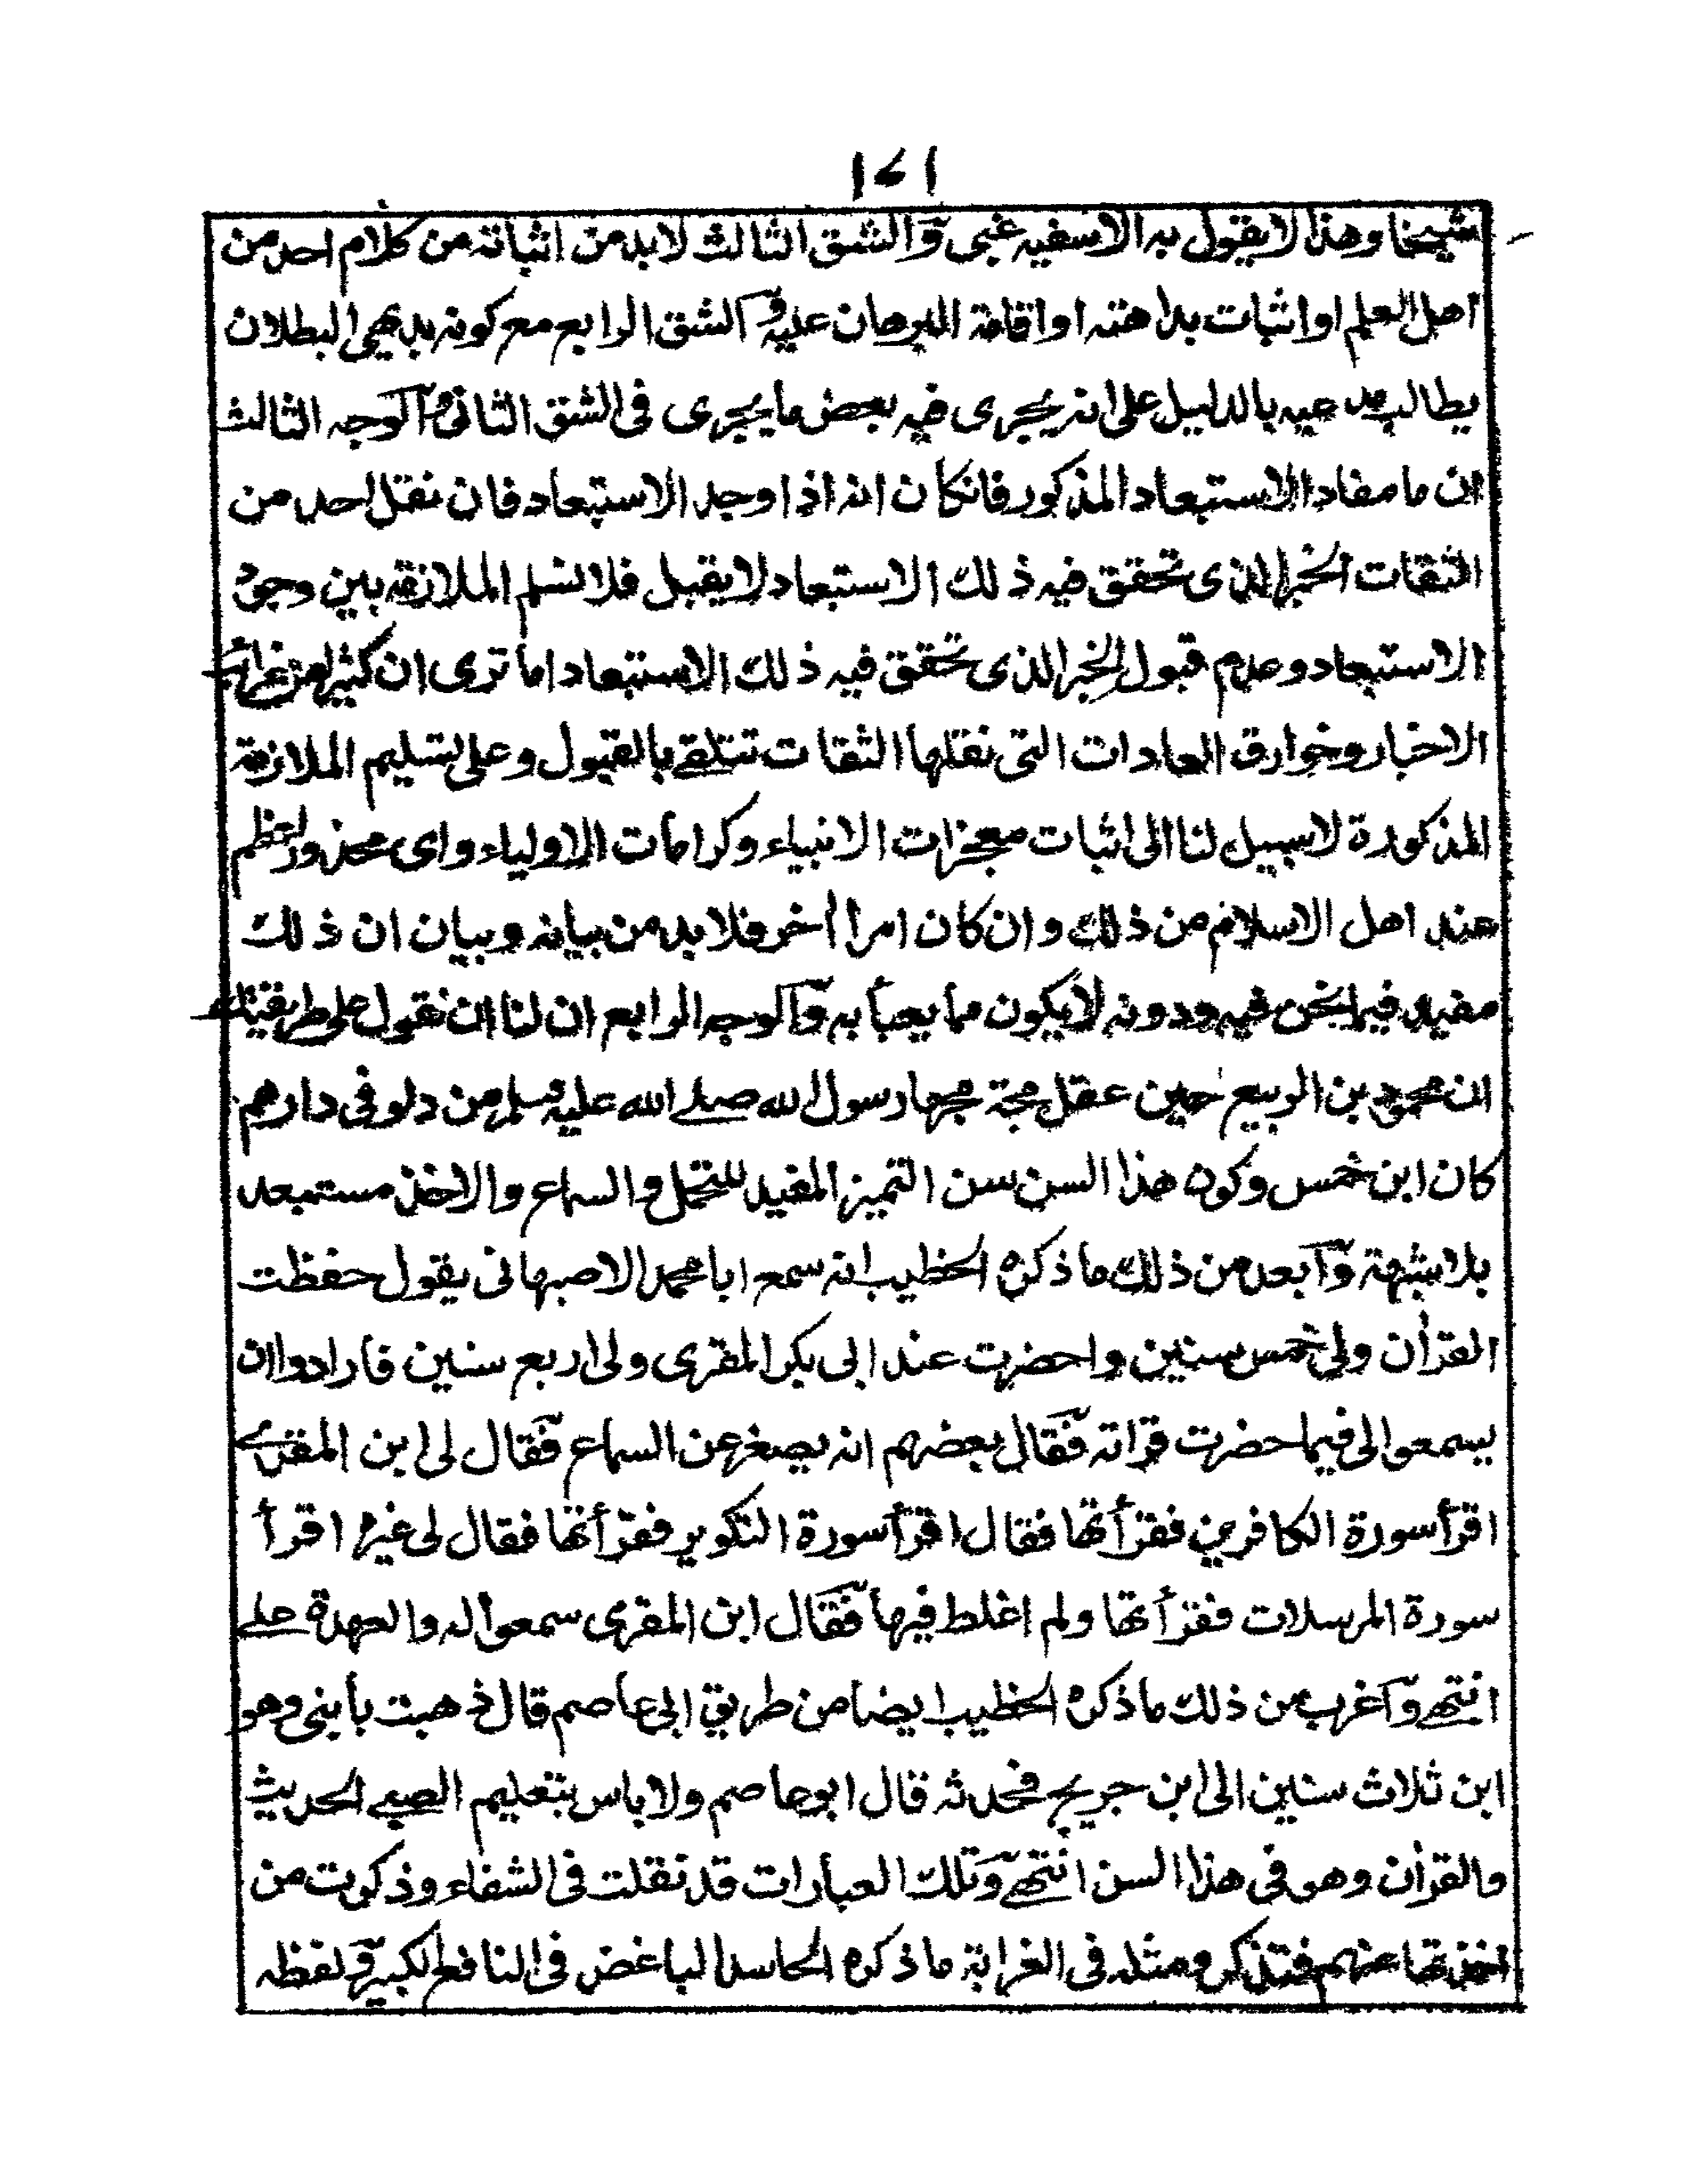 ١٧١
شيخنا وهذا لا يقول به الا سفيه غبى وآلشق الثالث لابد من اثباته من كلام احد من
اهل العلم او اثبات بداهته او اقامة البرهان عليه وآلشق الرابع مع كونه بديهى البطلان
يطالب مدعيه بالدليل على انه يجرى فيه بعض ما يجرى فى الشق الثانى وآلوجه الثالث
ان ما مفاد الاستبعاد المذكور فانكان انه اذا وجد الاستبعاد فان نقل احد من
الثقات الخبر الذى تحقق فيه ذلك الاستبعاد لا يقبل فلا نسلم الملازمة بين وجود
الاستبعاد وعدم قبول الخبر الذى تحقق فيه ذلك الاستبعاد اما ترى ان كثيرا من غرائب
الاخبار وخوارق العادات التى نقلها الثقات تتلقے بالقبول وعلى تسليم الملازمة
المذكورة لا سبيل لنا الى اثبات معجزات الانبياء وكرامات الاولياء واى محذور اعظم
عند اهل الاسلام من ذلك وان كان امرا أخر فلا بد من بيانه وبيان ان ذلك
مفيد فيما نحن فيه ودونه لا يكون مما يعبأ به وآلوجه الرابع ان لنا ان نقول على طريقتك
ان محمود بن الربيع حين عقل مجة مجها رسول الله صلے الله عليه وسلم من دلو فى دارهم
كان ابن خمس وكون هذا السن سن التميز المفيد للتحمل والسماع والاخذ مستبعد
بلا شبهة وآبعد من ذلك ما ذكره الخطيب انه سمع ابا محمد الاصبهانى يقول حفظت
القرأن ولى خمس سنين واحضرت عند ابى بكر المقرى ولى اربع سنين فارادوا ان
يسمعوا لى فيما حضرت قراته فقال بعضهم انه يصغر عن السماع فقال لى ابن المقرے
اقرأ سورة الكافرين فقرأتها فقال اقرأ سورة التكوير فقرأتها فقال لى غيره اقرأ
سورة المرسلات فقرأتها ولم اغلط فيها فقال ابن المقرى سمعوا له والعهدة علے
انتهے وآغرب من ذلك ما ذكره الخطيب ايضا من طريق ابى عاصم قال ذهبت بأبنى وهو
ابن ثلاث سنين الى ابن جريج فحدثه قال ابو عاصم ولا باس بتعليم الصبے الحديث
والقرأن وهو فى هذا السن انتهے وتلك العبارات قد نقلت فى الشفاء وذكرت من
اخذتها عنهم فتذكر ومثله فى الغرابة ما ذكره الحاسد الباغض فى النافع الكبير ولفظه